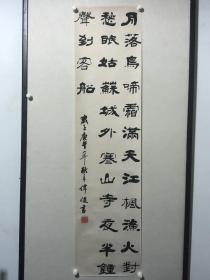 月落烏啼霜滿天江楓漁火對
愁眠姑蘇城外寒山寺夜半鍾
聲到客船
年秋 書